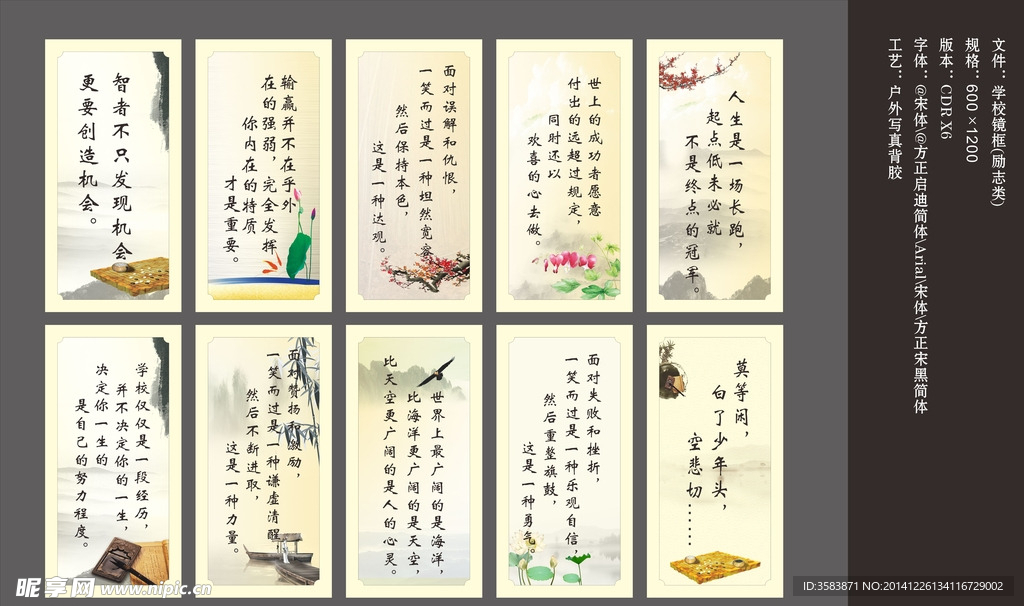 智者不只发现机会
更要创造机会。
输赢并不在乎外
在的强弱，完全发挥
你内在的特质
才是重要。
面对误解和仇恨，
一笑而过是一种坦然宽容
然后保持本色，
这是一种达观。
世上的成功者愿意
付出的远超过规定，
同时还以
欢喜的心去做。
人生是一场长跑，
起点低未必就
不是终点的冠军。
学校仅仅是一段经历，
并不决定你的一生，
决定你一生的
是自己的努力程度。
面对赞扬和激励，
一笑而过是一种谦虚清醒，
然后不断进取，
这是一种力量。
世界上最广阔的是海洋，
比海洋更广阔的是天空，
比天空更广阔的是人的心灵。
面对失败和挫折，
一笑而过是一种乐观自信，
然后重整旗鼓，
这是一种勇气。
莫等闲，
白了少年头，
空悲切……
文件：学校镜框(励志类)
规格：600×1200
版本：CDR X6
字体：@宋体\@方正启迪简体\Arial\宋体\方正宋黑简体
工艺：户外写真背胶
昵享网 www.nipic.cn
ID:3583871 NO:20141226134116729002